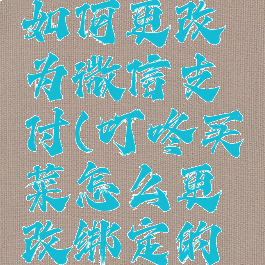 如何更改
为微信支
付(叮咚买
菜怎么更
改绑定的